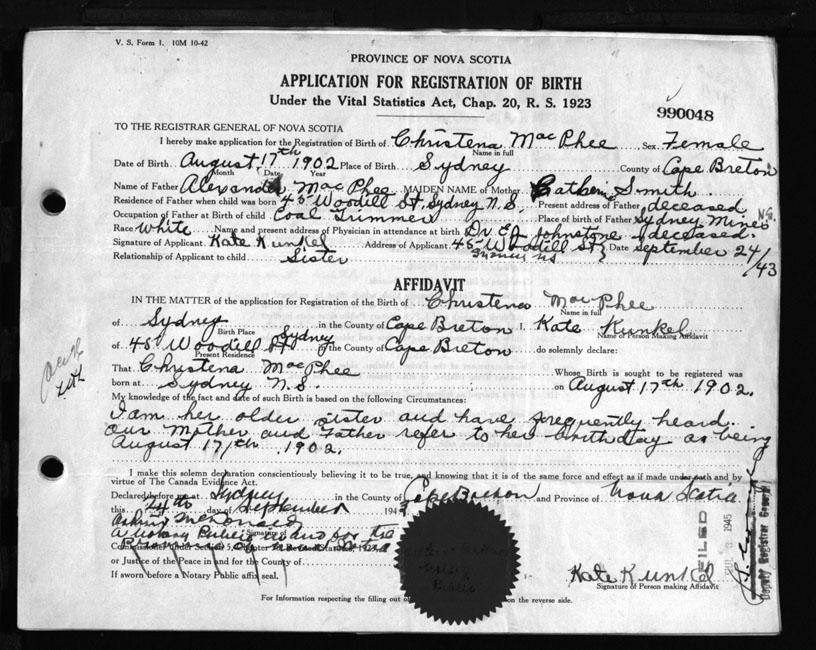 V. S. Form 1. 10M 10-42
PROVINCE OF NOVA SCOTIA
APPLICATION FOR REGISTRATION OF BIRTH
Under the Vital Statistics Act, Chap. 20, R. S. 1923
990048
TO THE REGISTRAR GENERAL OF NOVA SCOTIA
I hereby make application for the Registration of Birth of Christena MacPhee Sex Female
Name in full
Date of Birth August 17th 1902 Place of Birth Sydney County of Cape Breton
Month Date Year
Name of Father Alexander MacPhee MAIDEN NAME of Mother Catherine Smith
Residence of Father when child was born 45 Woodill St, Sydney N.S. Present address of Father deceased
Occupation of Father at Birth of child Coal Trimmer Place of birth of Father Sydney Mines N.S.
Race White Name and present address of Physician in attendance at birth Dr E J Johnstone deceased.
Signature of Applicant Kate Kunkel Address of Applicant 45 Woodill St Sydney NS Date September 24/43
Relationship of Applicant to child Sister
AFFIDAVIT
IN THE MATTER of the application for Registration of the Birth of Christena MacPhee
Name in full
of Sydney in the County of Cape Breton I, Kate Kunkel
Birth Place Name of Person Making Affidavit
of 45 Woodill St Sydney of the County of Cape Breton do solemnly declare:
Present Residence
That Christena MacPhee Whose Birth is sought to be registered was
born at Sydney N.S. on August 17th 1902.
My knowledge of the fact and date of such Birth is based on the following Circumstances:
I am her older sister and have frequently heard
our Mother and Father refer to her birthday as being
August 17th 1902.
I make this solemn declaration conscientiously believing it to be true, and knowing that it is of the same force and effect as if made under oath and by
virtue of The Canada Evidence Act.
Declared before me at Sydney in the County of Cape Breton and Province of Nova Scotia
this 24th day of September 194
McDonald
Signature of
A Notary Public in and for the
Province of Nova Scotia
Commissioner under Section 5, Chapter Revised Statutes, 1923
or Justice of the Peace in and for the County of
If sworn before a Notary Public affix seal.
Kate Kunkel
Signature of Person making Affidavit
For Information respecting the filling out of on the reverse side.
FILED
1945
Deputy Registrar General